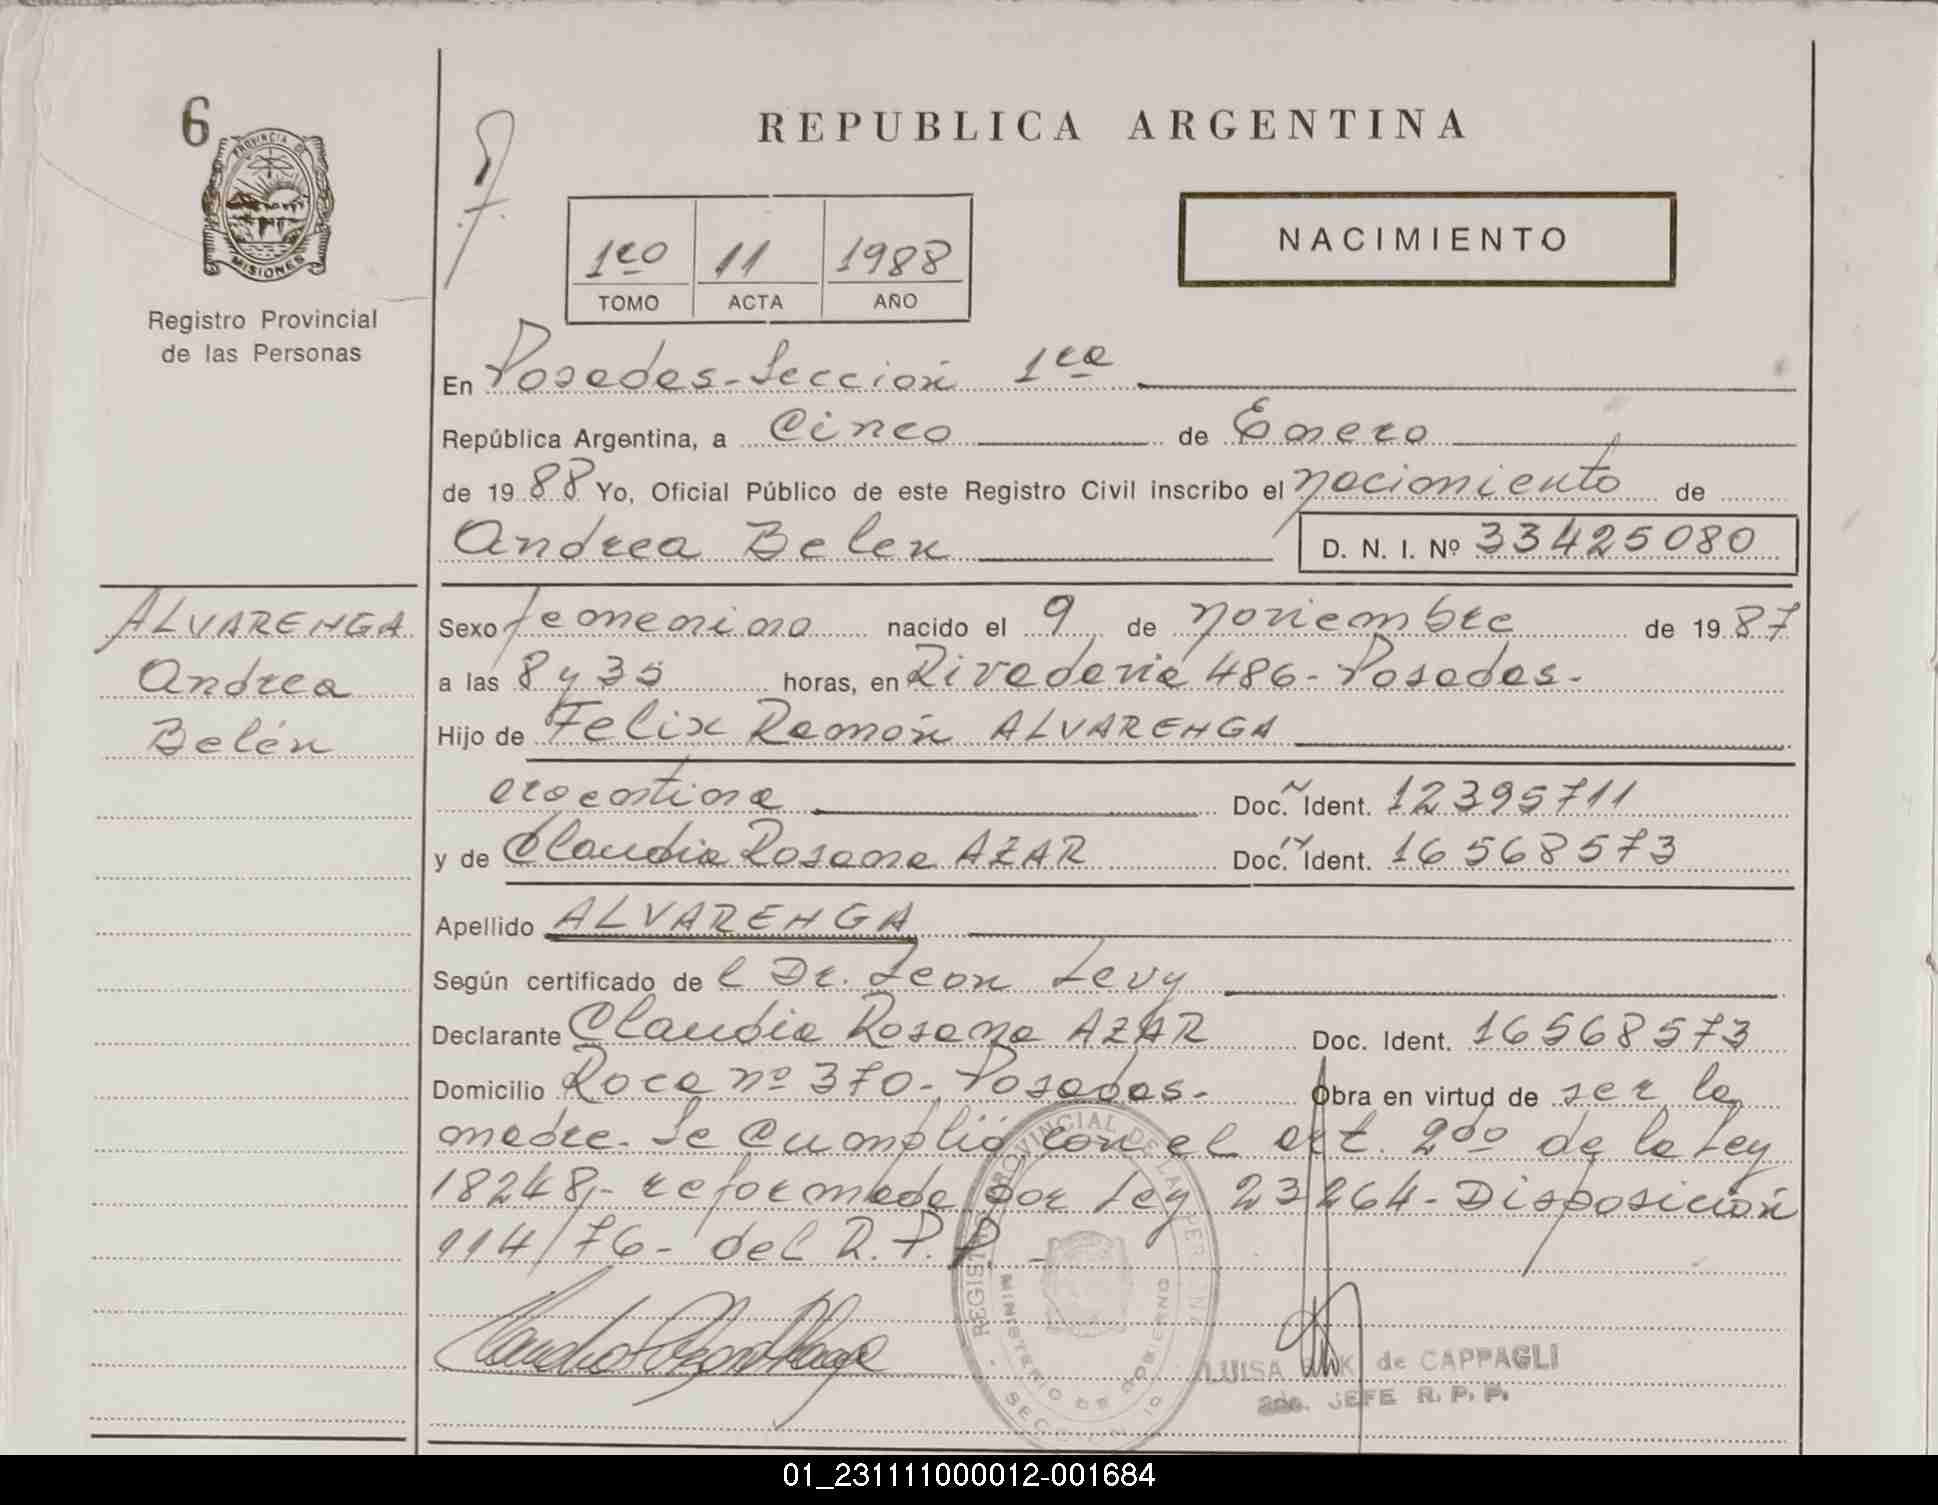 6
PROVINCIA DE
MISIONES
Registro Provincial
de las Personas
REPUBLICA ARGENTINA
1ro 11 1988
TOMO ACTA AÑO
NACIMIENTO
En Posadas-Sección 1ra
República Argentina, a Cinco de Enero
de 1988 Yo, Oficial Público de este Registro Civil inscribo el nacimiento de
Andrea Belen D. N. I. Nº 33425080
ALVARENGA
Andrea
Belén
Sexo femenino nacido el 9 de noviembre de 1987
a las 8 y 35 horas, en Rivadavia 486- Posadas.
Hijo de Felix Ramón ALVARENGA
argentina Doc. Ident. 12395711
y de Claudia Rosana AZAR Doc. Ident. 16568573
Apellido ALVARENGA
Según certificado de l Dr. Leon Levy
Declarante Claudia Rosana AZAR Doc. Ident. 16568573
Domicilio Roca nº 370- Posadas- Obra en virtud de ser la
madre- Se cumplió con el art. 2do de la Ley
18248,- reformada por Ley 23264- Disposición
114/76- del R.P.P. -
REGISTRO PROVINCIAL DE LAS PERSONAS
MINISTERIO DE GOBIERNO
LUISA de CAPPAGLI
2do. JEFE R.P.P.
01_231111000012-001684